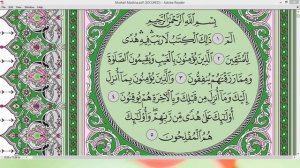 Mushaf Madina.pdf (SECURED) - Adobe Reader
بِسْمِ اللَّهِ الرَّحْمَٰنِ الرَّحِيمِ
الٓمٓ ١ ذَٰلِكَ الْكِتَابُ لَا رَيْبَ فِيهِ هُدًى
لِّلْمُتَّقِينَ ٢ الَّذِينَ يُؤْمِنُونَ بِالْغَيْبِ وَيُقِيمُونَ الصَّلَاةَ
وَمِمَّا رَزَقْنَاهُمْ يُنفِقُونَ ٣ وَالَّذِينَ يُؤْمِنُونَ بِمَا أُنزِلَ
إِلَيْكَ وَمَا أُنزِلَ مِن قَبْلِكَ وَبِالْآخِرَةِ هُمْ يُوقِنُونَ ٤
أُولَٰئِكَ عَلَىٰ هُدًى مِّن رَّبِّهِمْ وَأُولَٰئِكَ
هُمُ الْمُفْلِحُونَ ٥